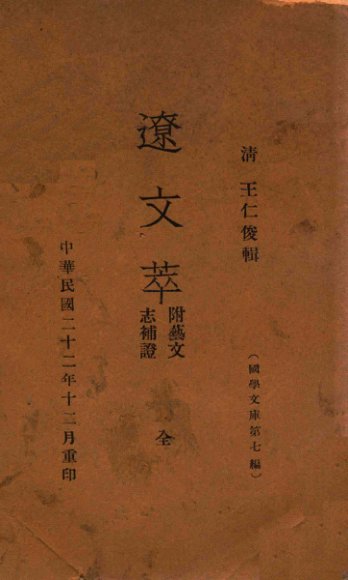 清 王仁俊輯
(國學文庫第七編)
遼文萃
附藝文
志補證
全
中華民國二十二年十二月重印